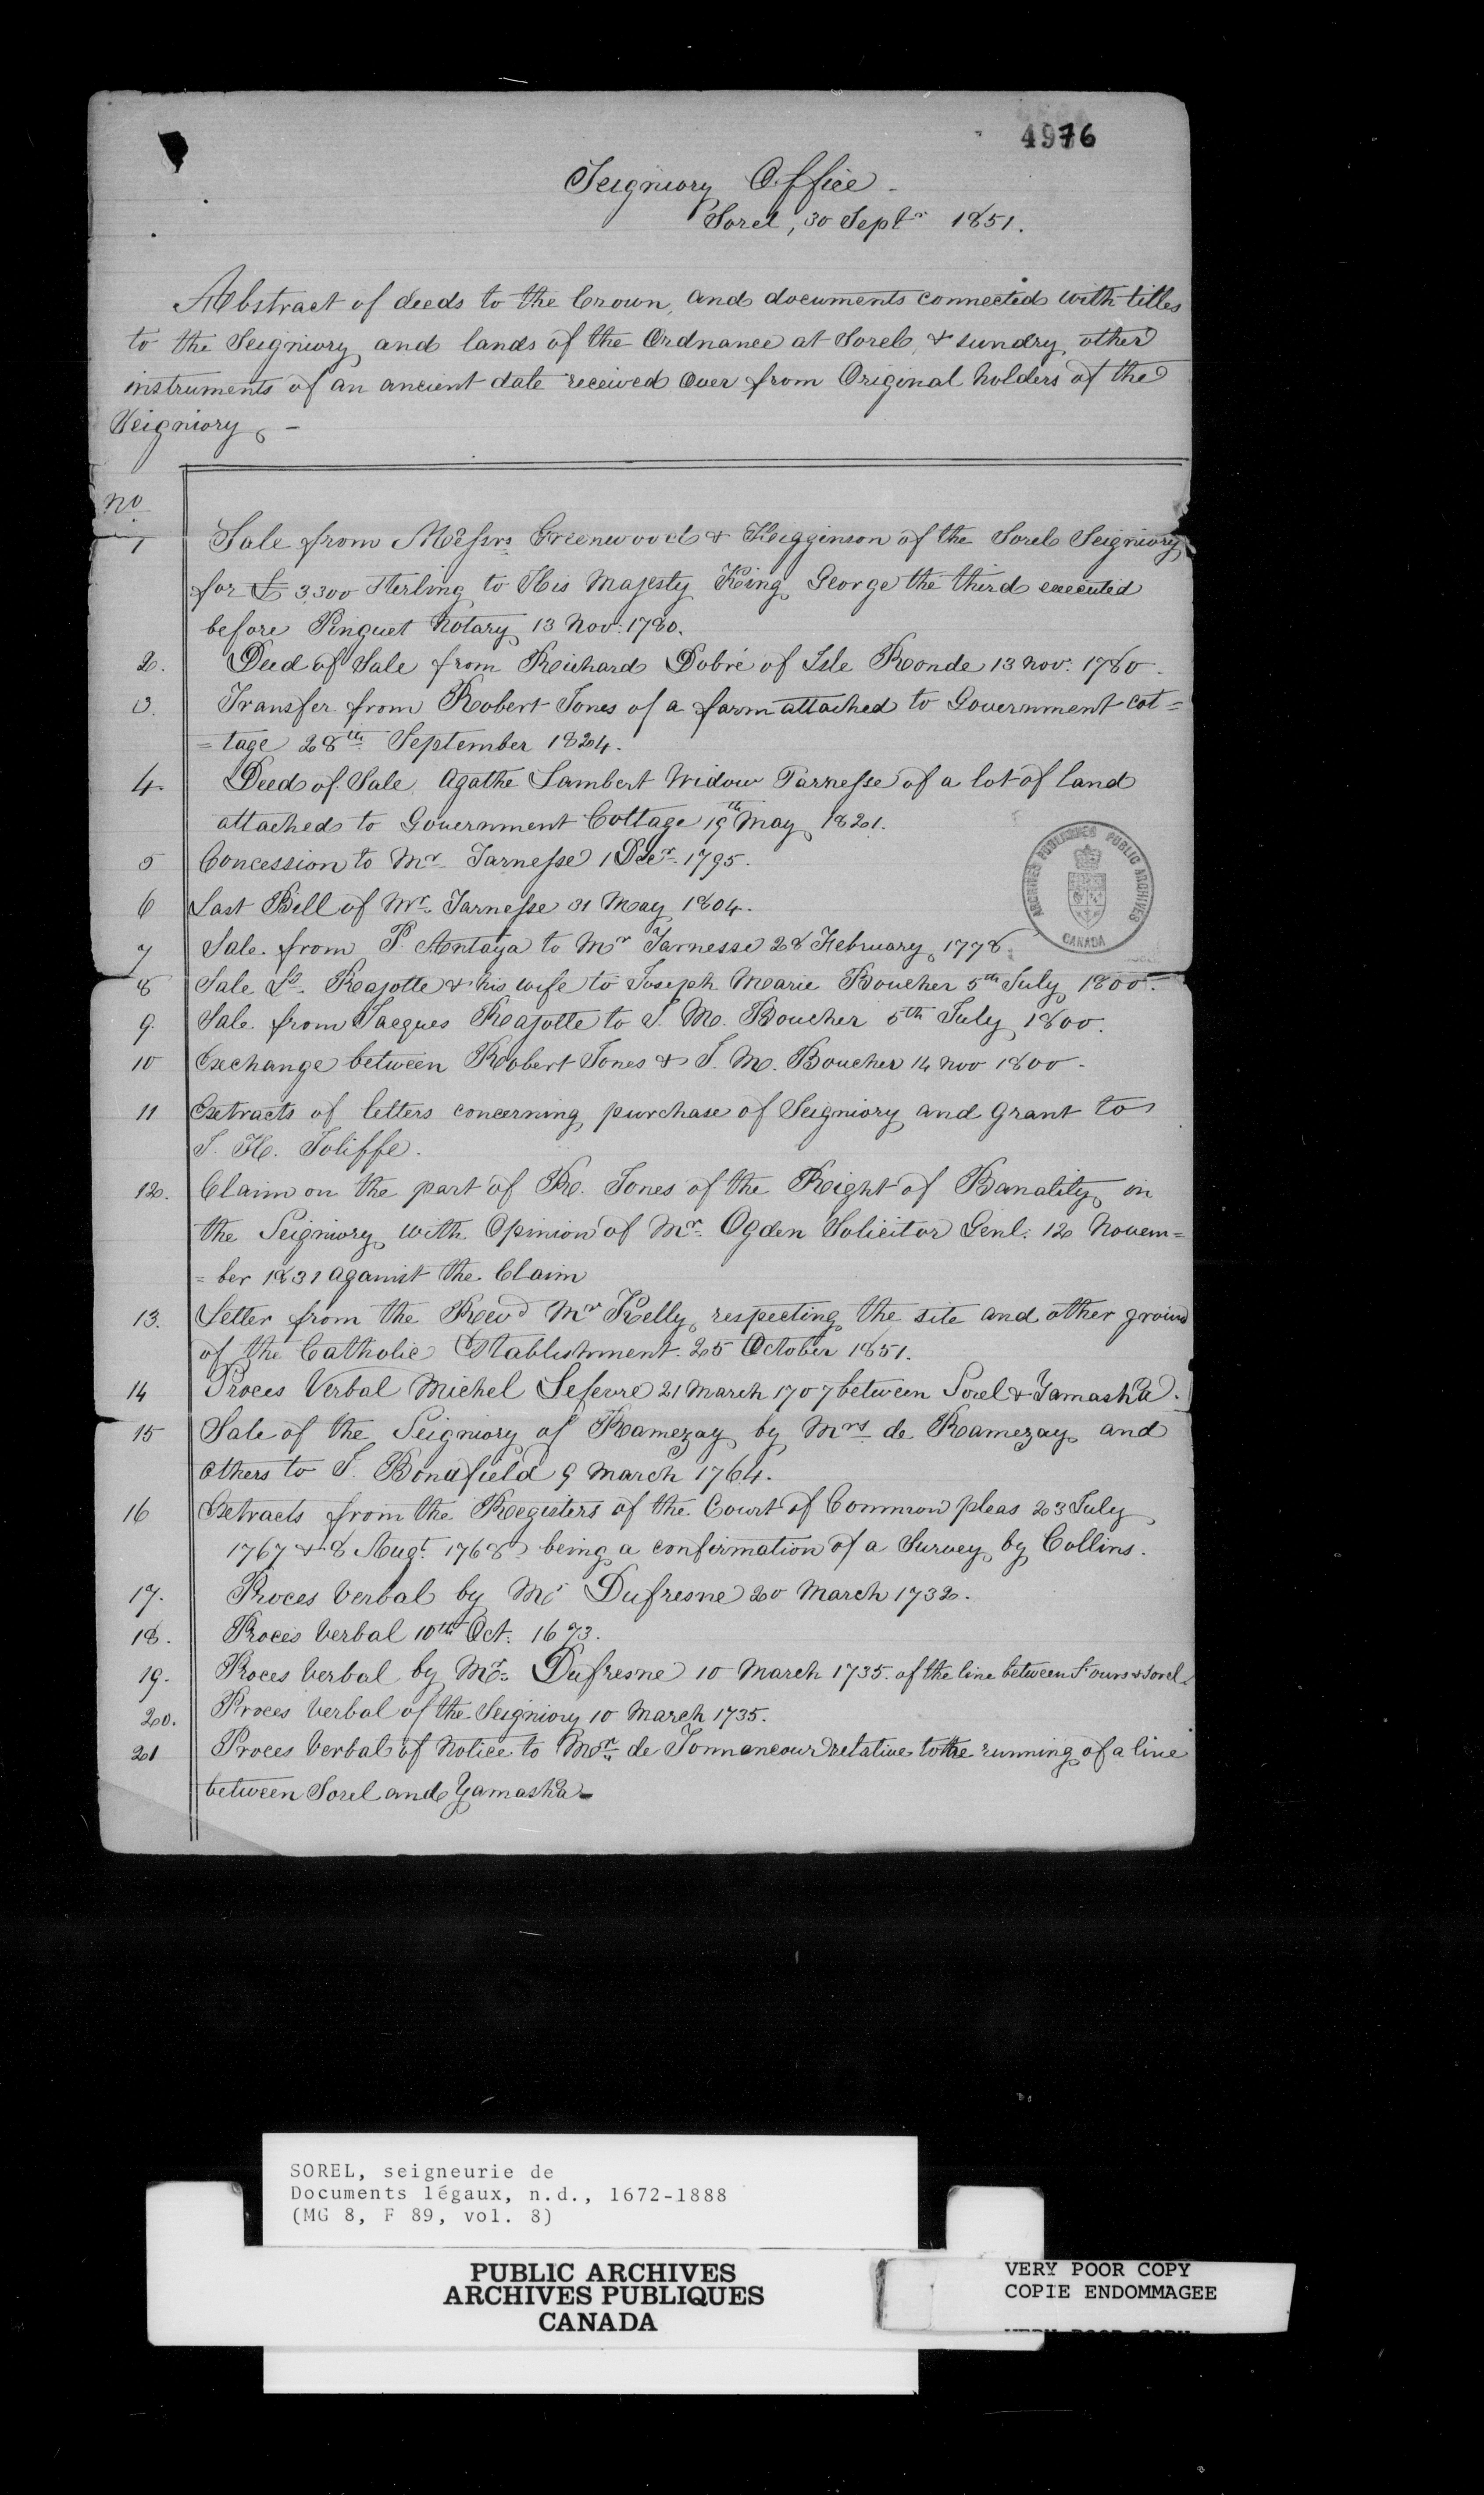 4976
Seigniory Office -
Sorel, 30 Septr 1851.
Abstract of deeds to the Crown, and documents connected with titles
to the Seigniory and lands of the Ordnance at Sorel, & sundry other
instruments of an ancient date received over from Original holders of the
Seigniory. -
No
1 Sale from Messrs Greenwood & Higginson of the Sorel Seigniory
for £ 3300 Sterling to His Majesty King George the third executed
before Pinguet Notary 13 Nov: 1780.
2. Deed of Sale from Richard Dobré of Isle Ronde 13 nov: 1780.
3. Transfer from Robert Jones of a farm attached to Government Cot=
=tage 28th September 1824.
4. Deed of Sale Agathe Lambert Widow Tarnesse of a lot of land
attached to Government Cottage 19th May 1821.
5 Concession to Mr Tarnesse 1 Decr 1795.
6 Last Bill of Mr Tarnesse 31 May 1804.
7 Sale from P. Antaya to Mr Tarnesse 28 February 1778.
8 Sale Ls Rajotte & his wife to Joseph Marie Boucher 5th July 1800.
9. Sale from Jacques Rajotte to J. M. Boucher 5th July 1800.
10 Exchange between Robert Jones & J. M. Boucher 14 Nov 1800.
11 Extracts of letters concerning purchase of Seigniory and Grant to
J. H. Joliffe.
12. Claim on the part of R. Jones of the Right of Banality in
the Seigniory with Opinion of Mr Ogden Solicitor Genl: 12 Novem=
=ber 1831 against the Claim
13. Letter from the Revd Mr Kelly respecting the site and other ground
of the Catholic Establishment. 25 October 1851.
14 Proces Verbal Michel Lefevre 21 March 1707 between Sorel & Yamaska.
15 Sale of the Seigniory of Ramezay by Mrs de Ramezay and
others to J. Bondfield 9 March 1764.
16 Extracts from the Registers of the Court of Common pleas 23 July
1767 & 8 Augt 1768 being a confirmation of a Survey by Collins.
17. Proces Verbal by Mr Dufresne 20 March 1732.
18. Proces Verbal 10th Oct: 1673.
19. Proces Verbal by Mr Dufresne 10 March 1735. of the line between St ours & Sorel
20. Proces Verbal of the Seigniory 10 March 1735.
21 Proces Verbal of Notice to Mr de Tonnancour relative to the running of a line
between Sorel and Yamaska -
ARCHIVES PUBLIQUES PUBLIC ARCHIVES
CANADA
SOREL, seigneurie de
Documents légaux, n.d., 1672-1888
(MG 8, F 89, vol. 8)
PUBLIC ARCHIVES
ARCHIVES PUBLIQUES
CANADA
VERY POOR COPY
COPIE ENDOMMAGEE
VERY POOR COPY